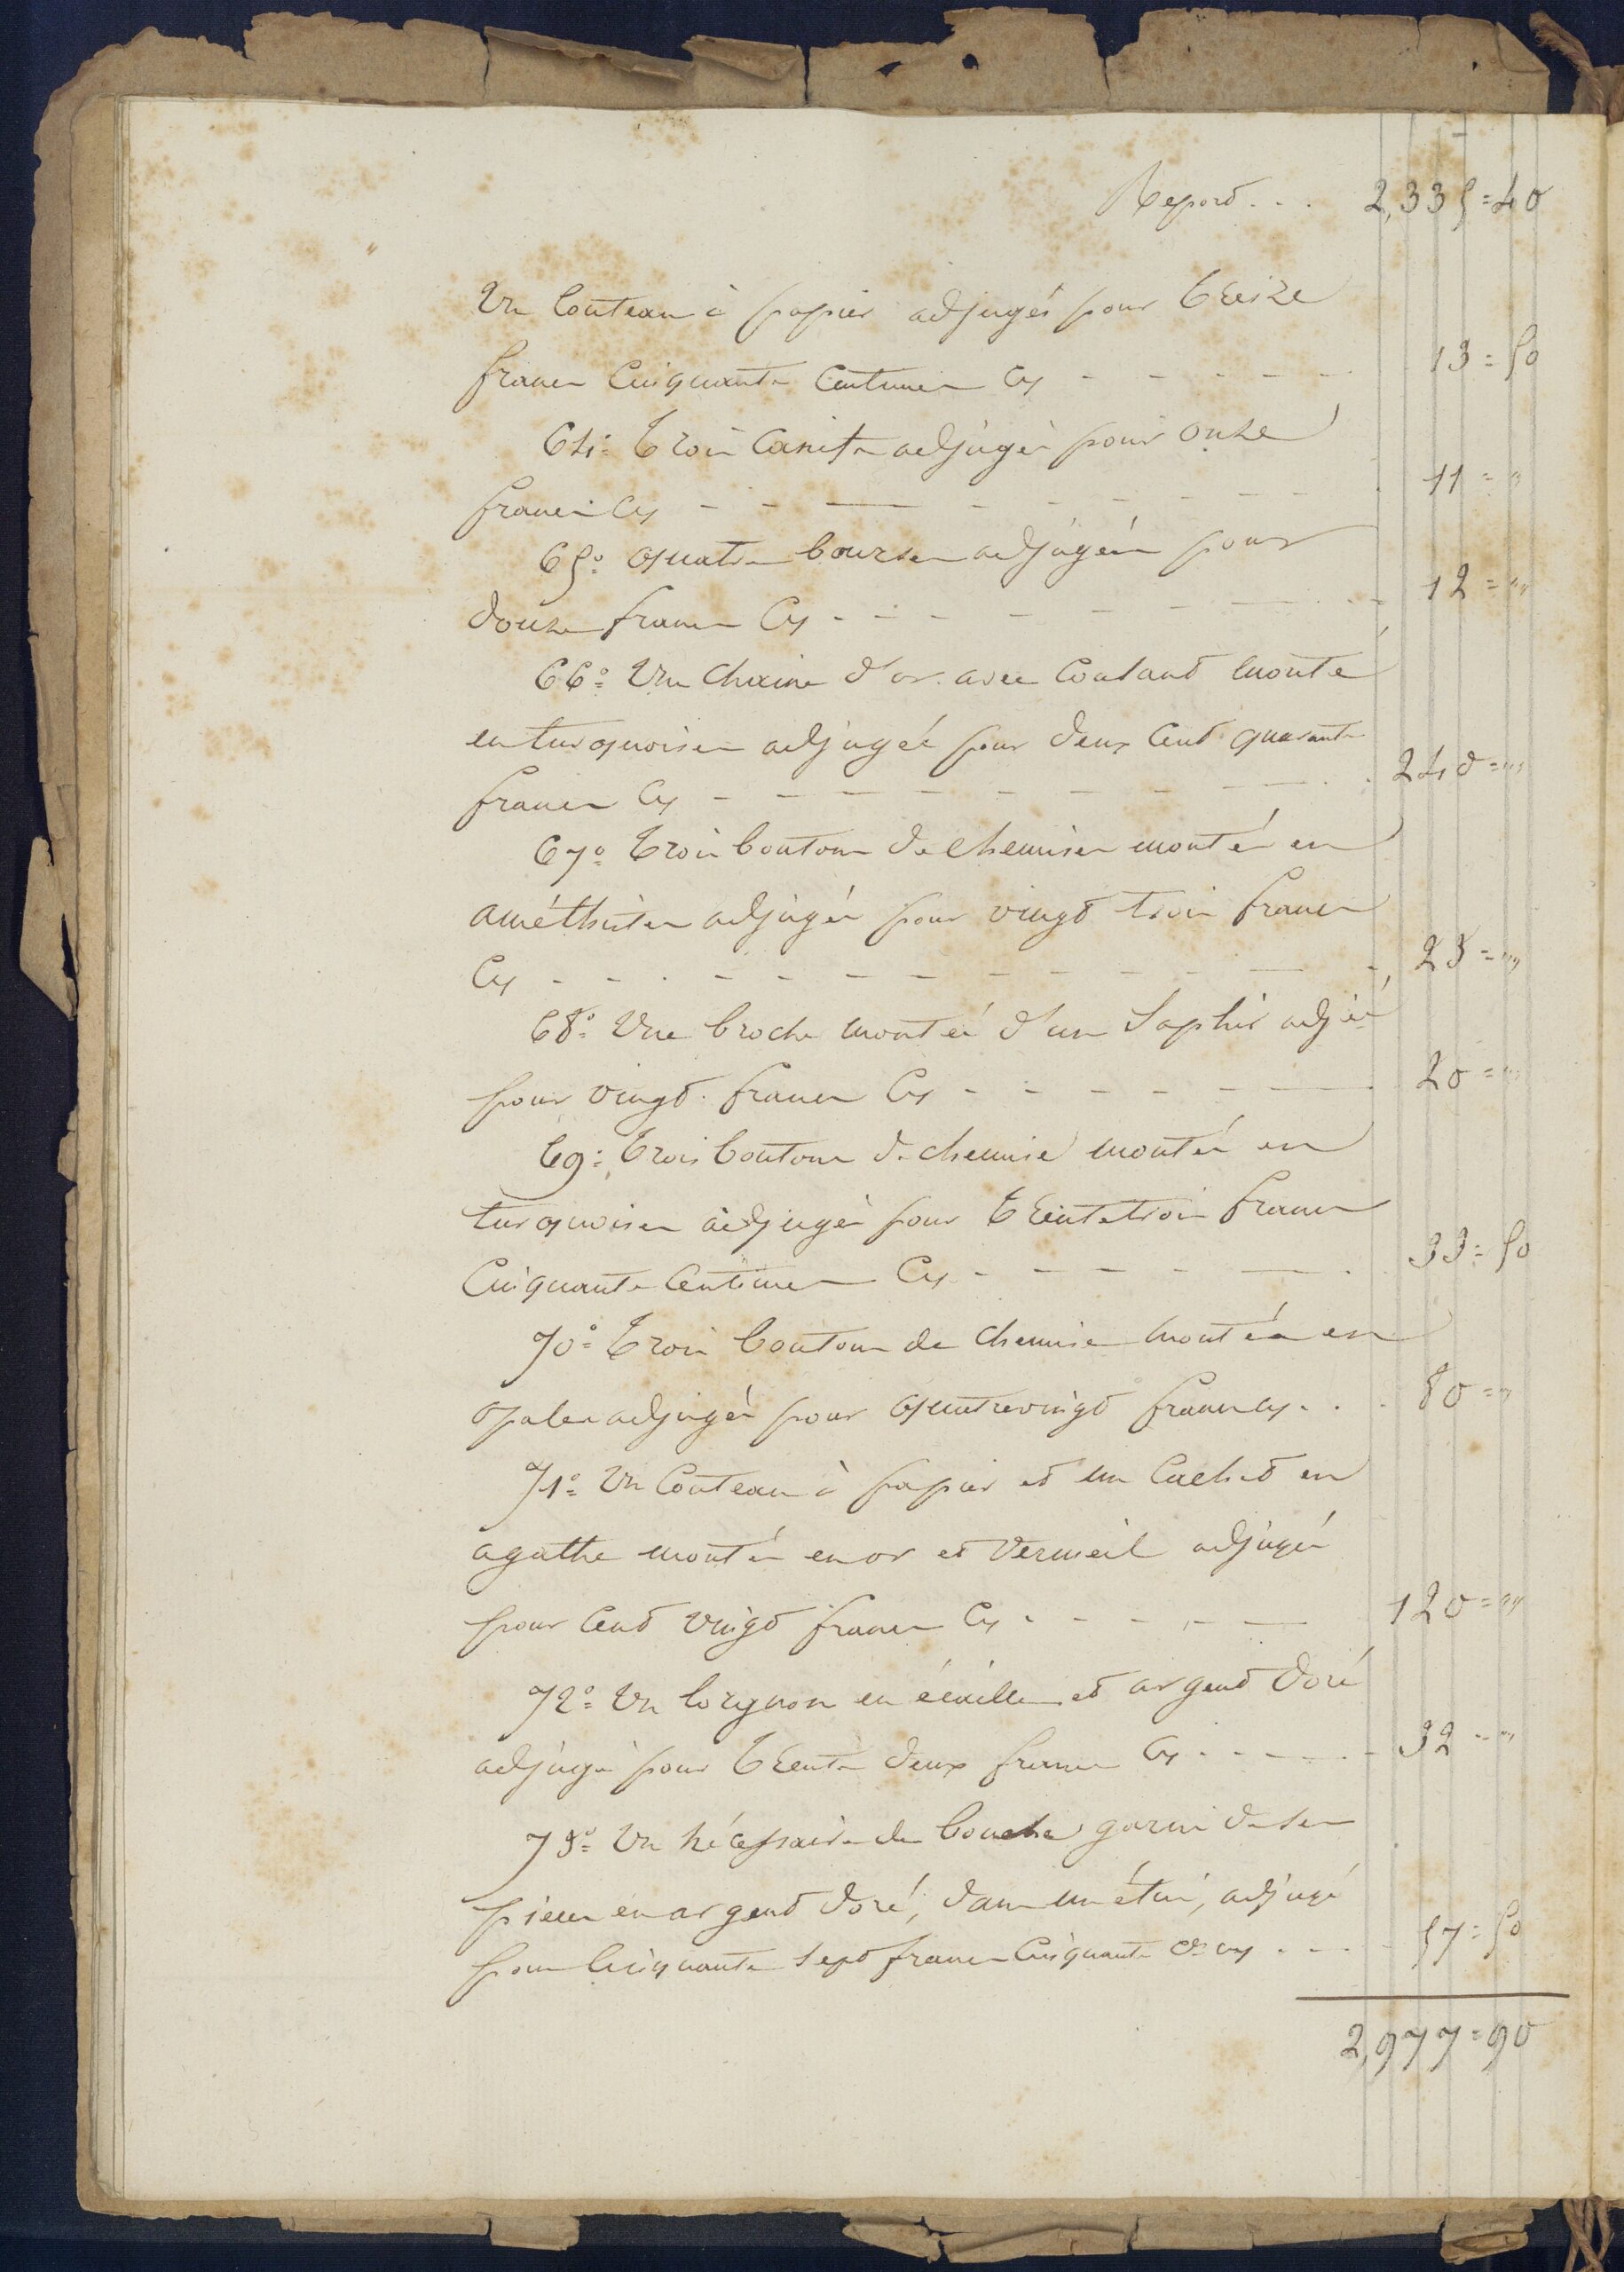 Report... 2,335=40
Un Couteau à papier adjugés pour treize
francs Cinquante Centimes Cy - - - - - 13=50
64° Trois Canifs adjugés pour onze
francs Cy - - - - - - - 11="
65° quatre bourses adjugées pour
douze francs Cy - - - - - - - 12="
66° Une Chaine d'or avec Coulant monté
en turquoises adjugée pour deux Cent quarante
francs Cy - - - - - - - - 240="
67° Trois boutons de chemises montés en
améthistes adjugés pour vingt trois francs
Cy - - - - - - - - - - - 23="
68° Une broche montée d'un Saphir adjée
pour vingt francs Cy - - - - - - 20="
69° Trois boutons de chemise montés en
turquoises adjugés pour trente trois francs
Cinquante Centimes Cy - - - - - 33=50
70° Trois boutons de chemise montés en
opales adjugés pour quatrevingt francs cy... 80="
71° Un Couteau à papier et un Cachet en
agathe montés en or et vermeil adjugés
pour Cent vingt francs Cy - - - - - 120="
72° Un lorgnon en écaille et argent doré
adjugé pour trente deux francs Cy - - - - 32="
73° Un nécessaire de bouche garni de ses
pièces en argent doré, dans un étui, adjugé
pour Cinquante sept francs Cinquante c. cy - - - 57=50
2,977=90